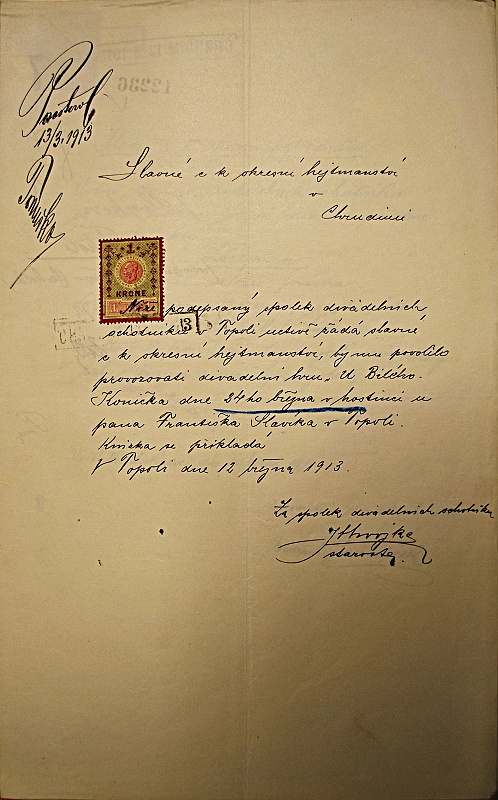 13/3. 1913
Slavné c k okresní hejtmanství
v
Chrudimi
1
KRONE
Níže podepsaný spolek divadelních
ochotníků v Topoli uctivě žádá slavné
c k okresní hejtmanství, by mu povolilo
provozovati divadelní hru „U Bílého
Koníčka dne 24ho března v hostinci u
pana Františka Slavíka v Topoli.
Knížka se přikládá
V Topoli dne 12 března 1913.
Za spolek divadelních ochotníků
starosta.
12236